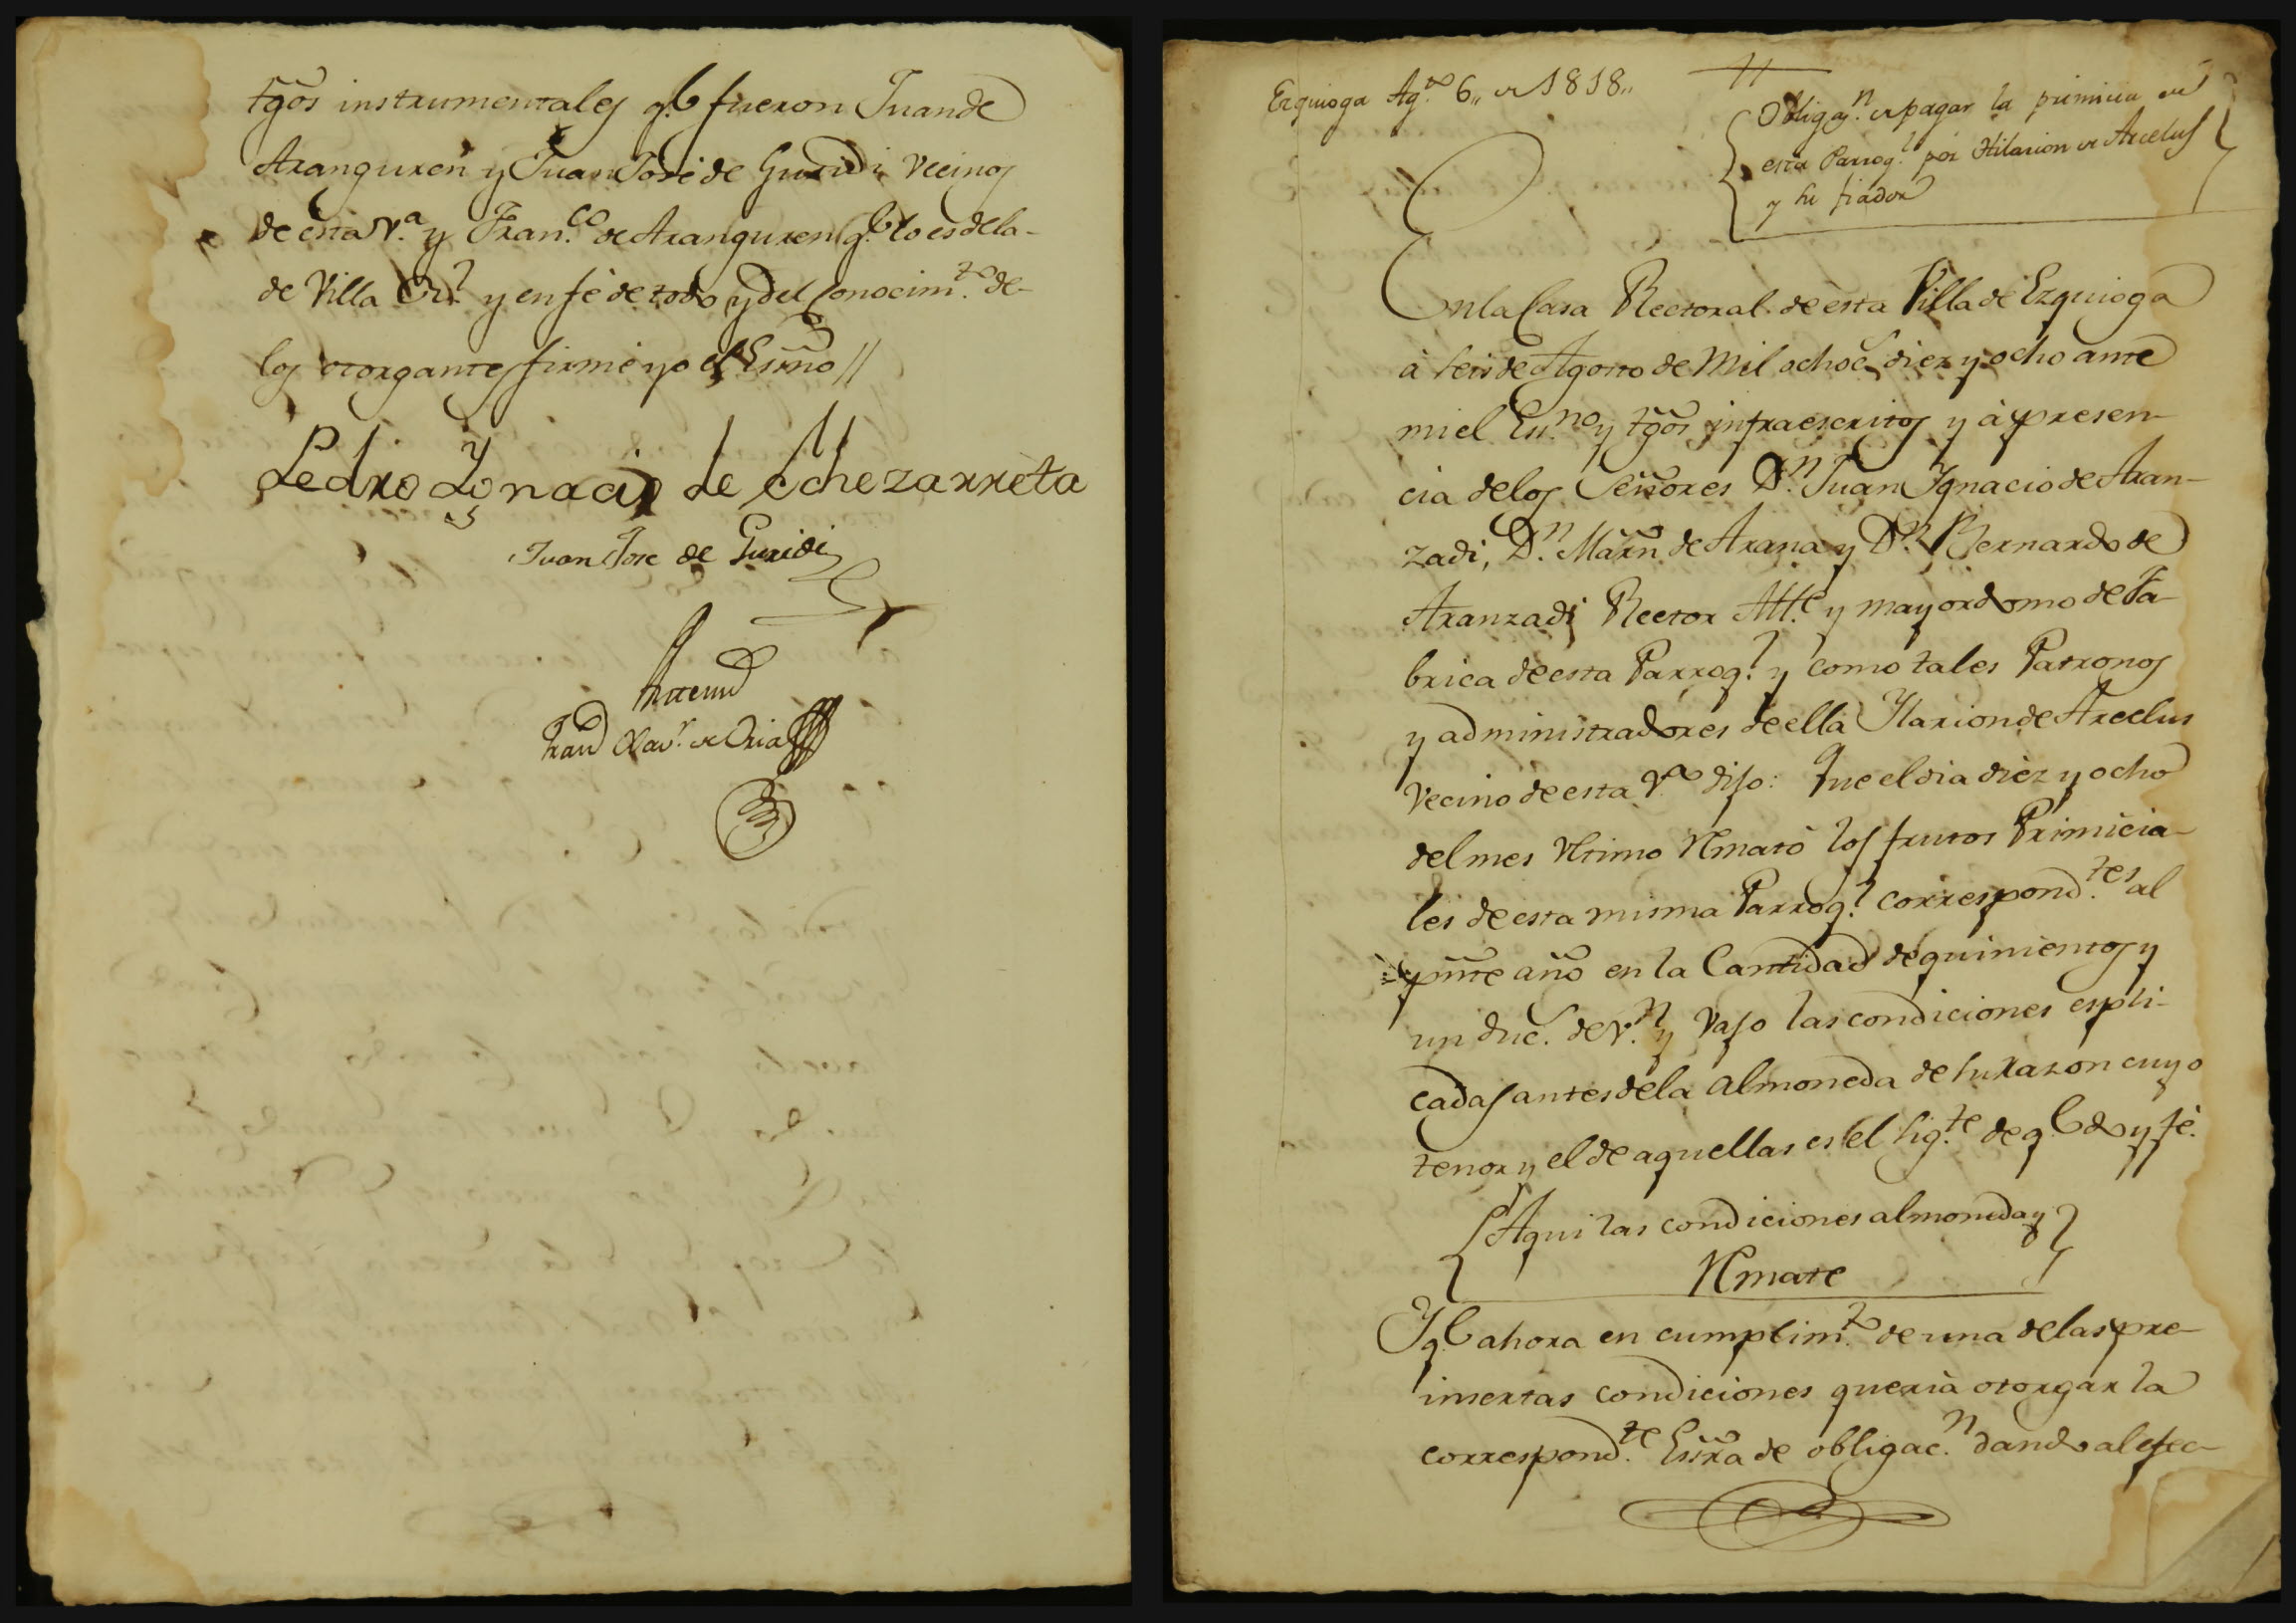 tg̃os instrumentales q.e fueron Juan de
Aranguren y Juan Jose de Guridi vecinos
de esta V.a y Fran.co de Aranguren q.e lo es de la
de Villa R.l y en fé de todo y del conocim.to de
los otorgantes firmé yo el Esño //
Pedro Ygnacio de Echezarreta
Juan Jose de Guridi
Antemi
Fran.co Xav.r de Oria
Ezquioga Ag.to 6,, de 1818,,
Obligaz.n de pagar la primicia de
esta Parroq.l por Hilarion de Arcelus
y su fiador
En la Casa Rectoral de esta Villa de Ezquioga
à seis de Agosto de mil ochoc.s diez y ocho ante
mi el Es.no y tg̃os infraescritos y à presen-
cia de los Señores D.n Juan Ygnacio de Aran-
zadi, D.n Mar̃n de Arana y D.n Bernardo de
Aranzadi Rector Alt.e y mayordomo de Fa-
brica de esta Parroq.l y como tales Patronos
y administradores de ella Ylarion de Arcelus
vecino de esta V.a dijo: Que el dia diez y ocho
del mes ultimo Rmató los frutos Primicia-
les de esta misma Parroq.l correspond.tes al
pñte año en la Cantidad de quinientos y
un duc.s de v.n y vajo las condiciones espli-
cadas antes de la almoneda de su razon cuyo
tenor y el de aquellas es el sig.te de q.e doy fé.
Aqui las condiciones almoneda y
Rmate
Y q.e ahora en cumplim.to de una de las pre-
insertas condiciones queria otorgar la
correspond.te Esr̃a de obligac.n dando al efec-